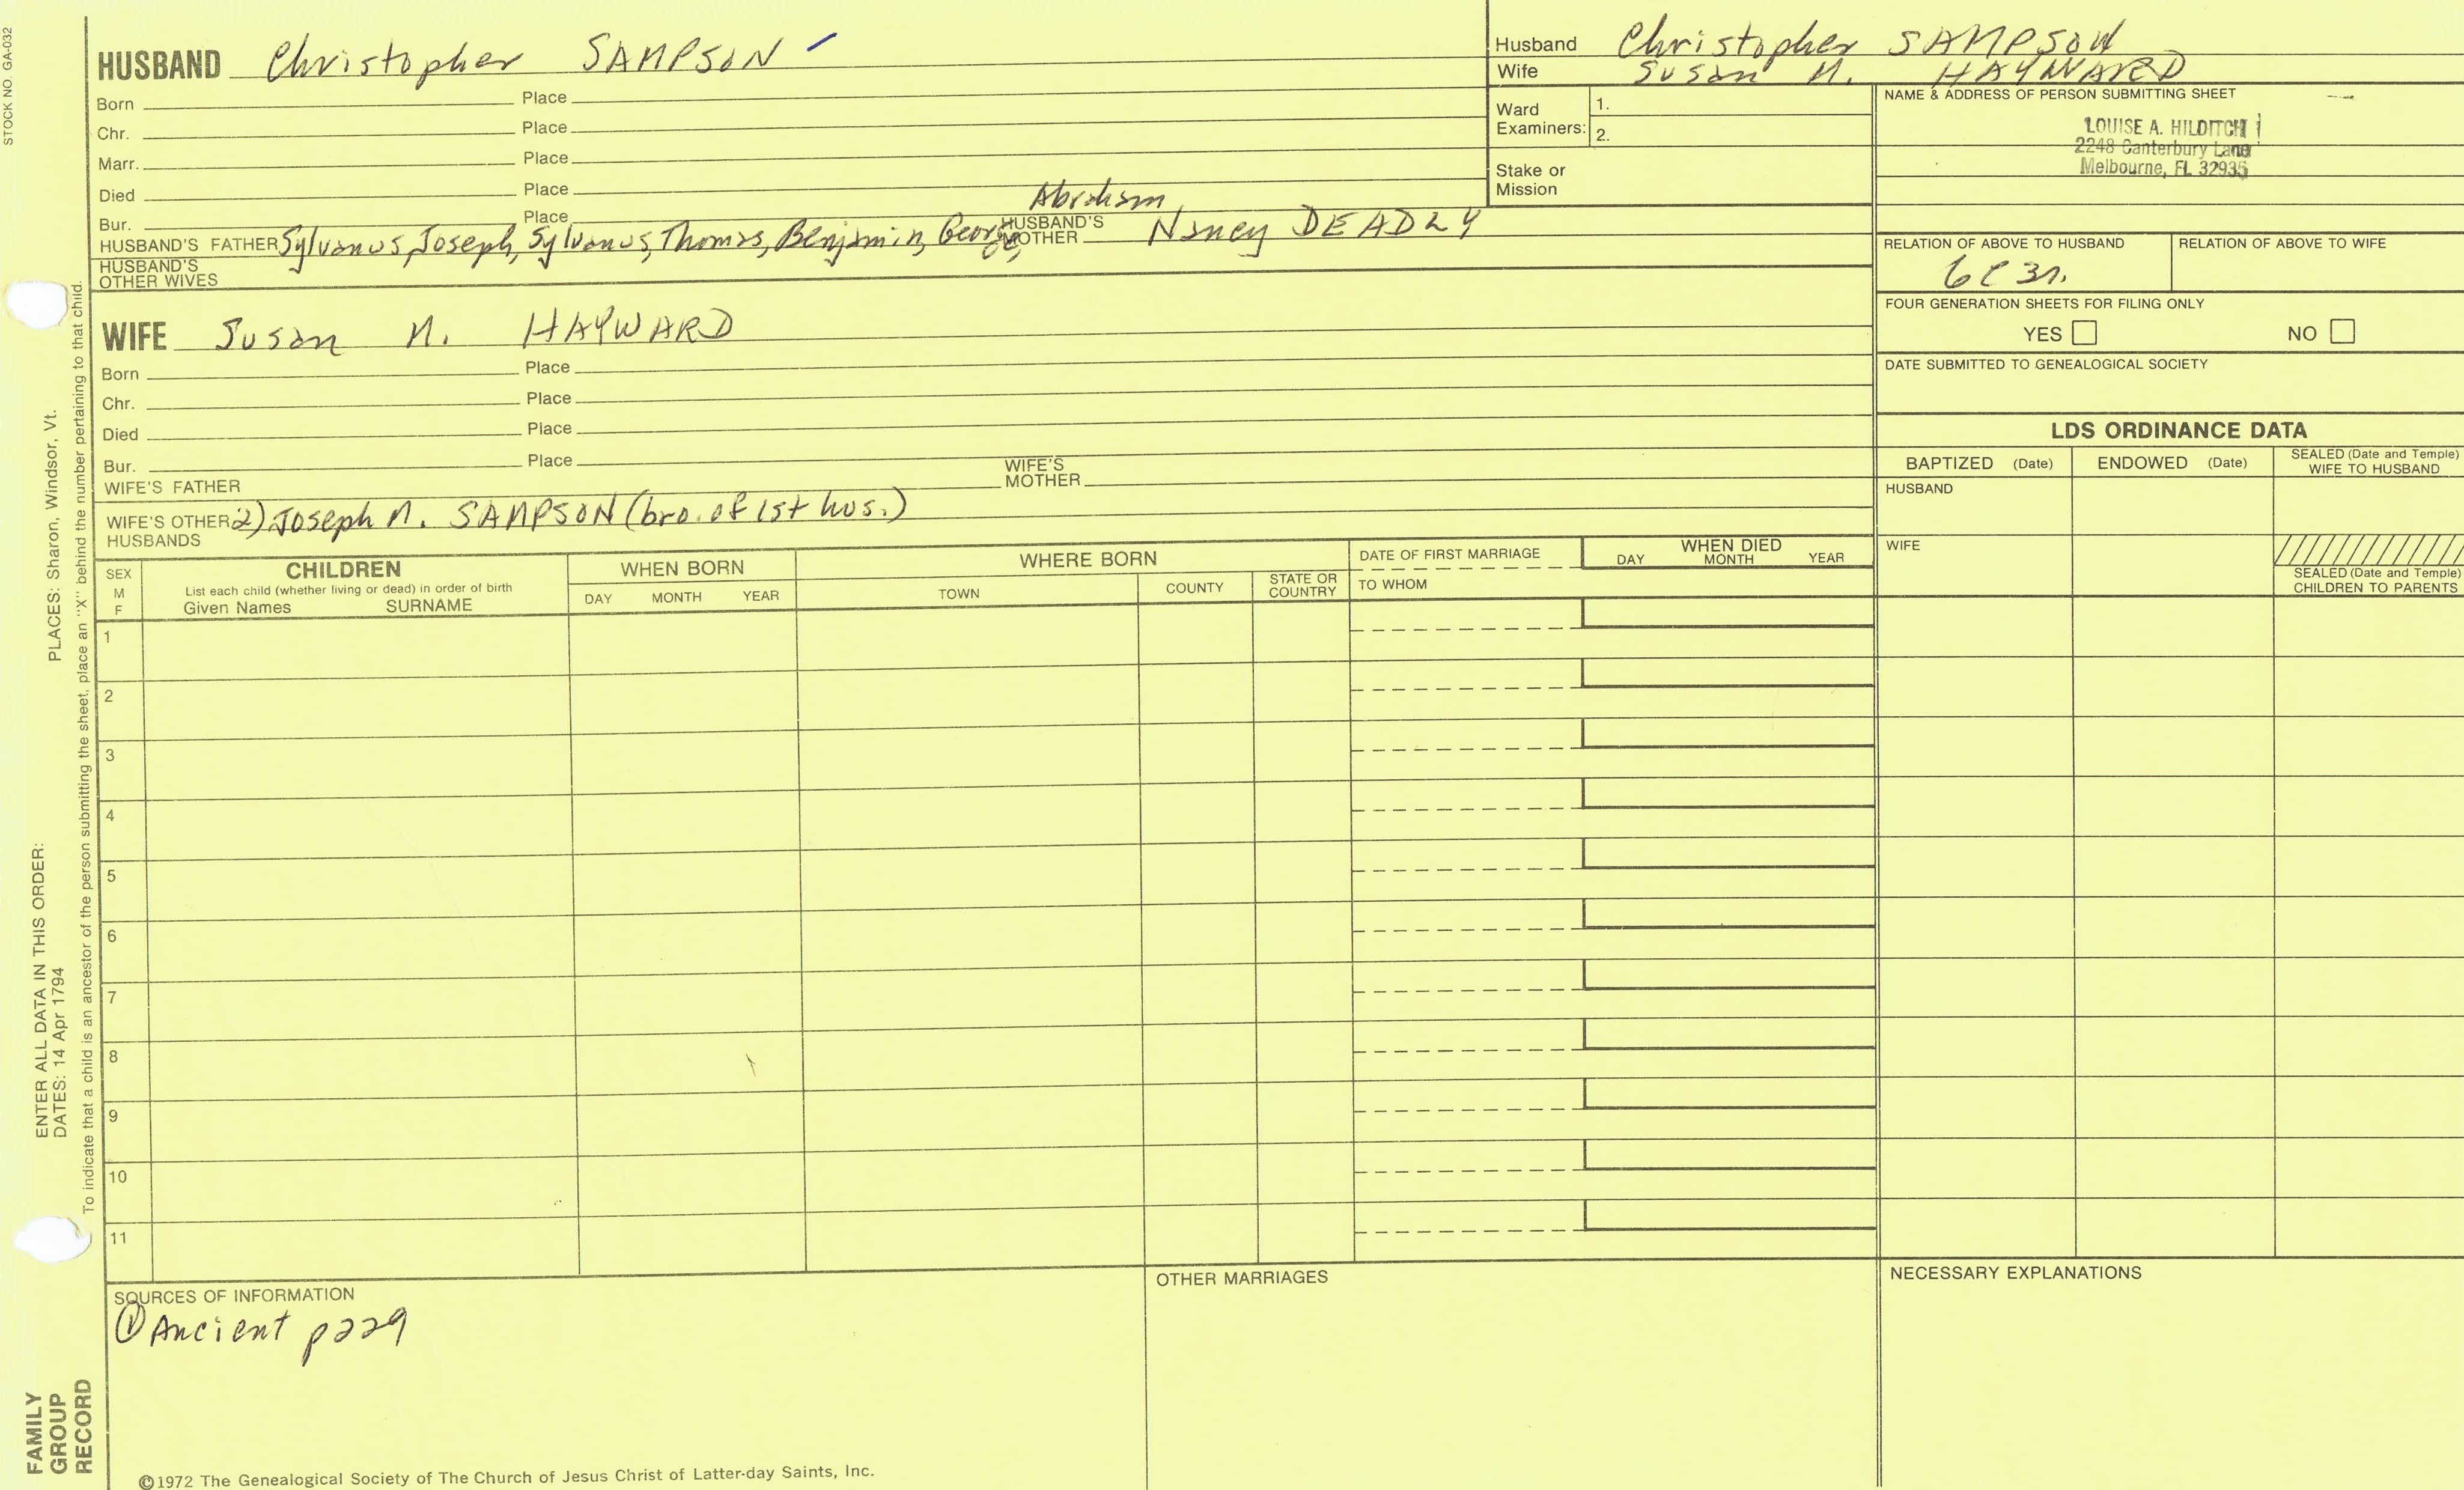 STOCK NO. GA-032
HUSBAND Christopher SAMPSON
Born Place
Chr. Place
Marr. Place
Died Place
Bur. Place
Abraham
HUSBAND'S FATHER Sylvanus, Joseph, Sylvanus, Thomas, Benjamin, George, HUSBAND'S MOTHER Nancy DEADLY
HUSBAND'S OTHER WIVES
Husband Christopher SAMPSON
Wife Susan M. HAYWARD
Ward Examiners: 1.
2.
Stake or Mission
NAME & ADDRESS OF PERSON SUBMITTING SHEET
LOUISE A. HILDITCH
2248 Canterbury Lane
Melbourne, FL 32935
RELATION OF ABOVE TO HUSBAND RELATION OF ABOVE TO WIFE
6C3r.
FOUR GENERATION SHEETS FOR FILING ONLY
YES NO
DATE SUBMITTED TO GENEALOGICAL SOCIETY
WIFE Susan M. HAYWARD
Born Place
Chr. Place
Died Place
Bur. Place
WIFE'S FATHER WIFE'S MOTHER
WIFE'S OTHER HUSBANDS 2) Joseph M. SAMPSON (bro. of 1st hus.)
LDS ORDINANCE DATA
BAPTIZED (Date) ENDOWED (Date) SEALED (Date and Temple) WIFE TO HUSBAND
HUSBAND
WIFE
SEALED (Date and Temple) CHILDREN TO PARENTS
SEX M F
CHILDREN
List each child (whether living or dead) in order of birth
Given Names SURNAME
WHEN BORN
DAY MONTH YEAR
WHERE BORN
TOWN COUNTY STATE OR COUNTRY
DATE OF FIRST MARRIAGE
TO WHOM
WHEN DIED
DAY MONTH YEAR
1
2
3
4
5
6
7
8
9
10
11
SOURCES OF INFORMATION
① Ancient p229
OTHER MARRIAGES
NECESSARY EXPLANATIONS
©1972 The Genealogical Society of The Church of Jesus Christ of Latter-day Saints, Inc.
FAMILY GROUP RECORD
ENTER ALL DATA IN THIS ORDER:
DATES: 14 Apr 1794 PLACES: Sharon, Windsor, Vt.
To indicate that a child is an ancestor of the person submitting the sheet, place an "X" behind the number pertaining to that child.